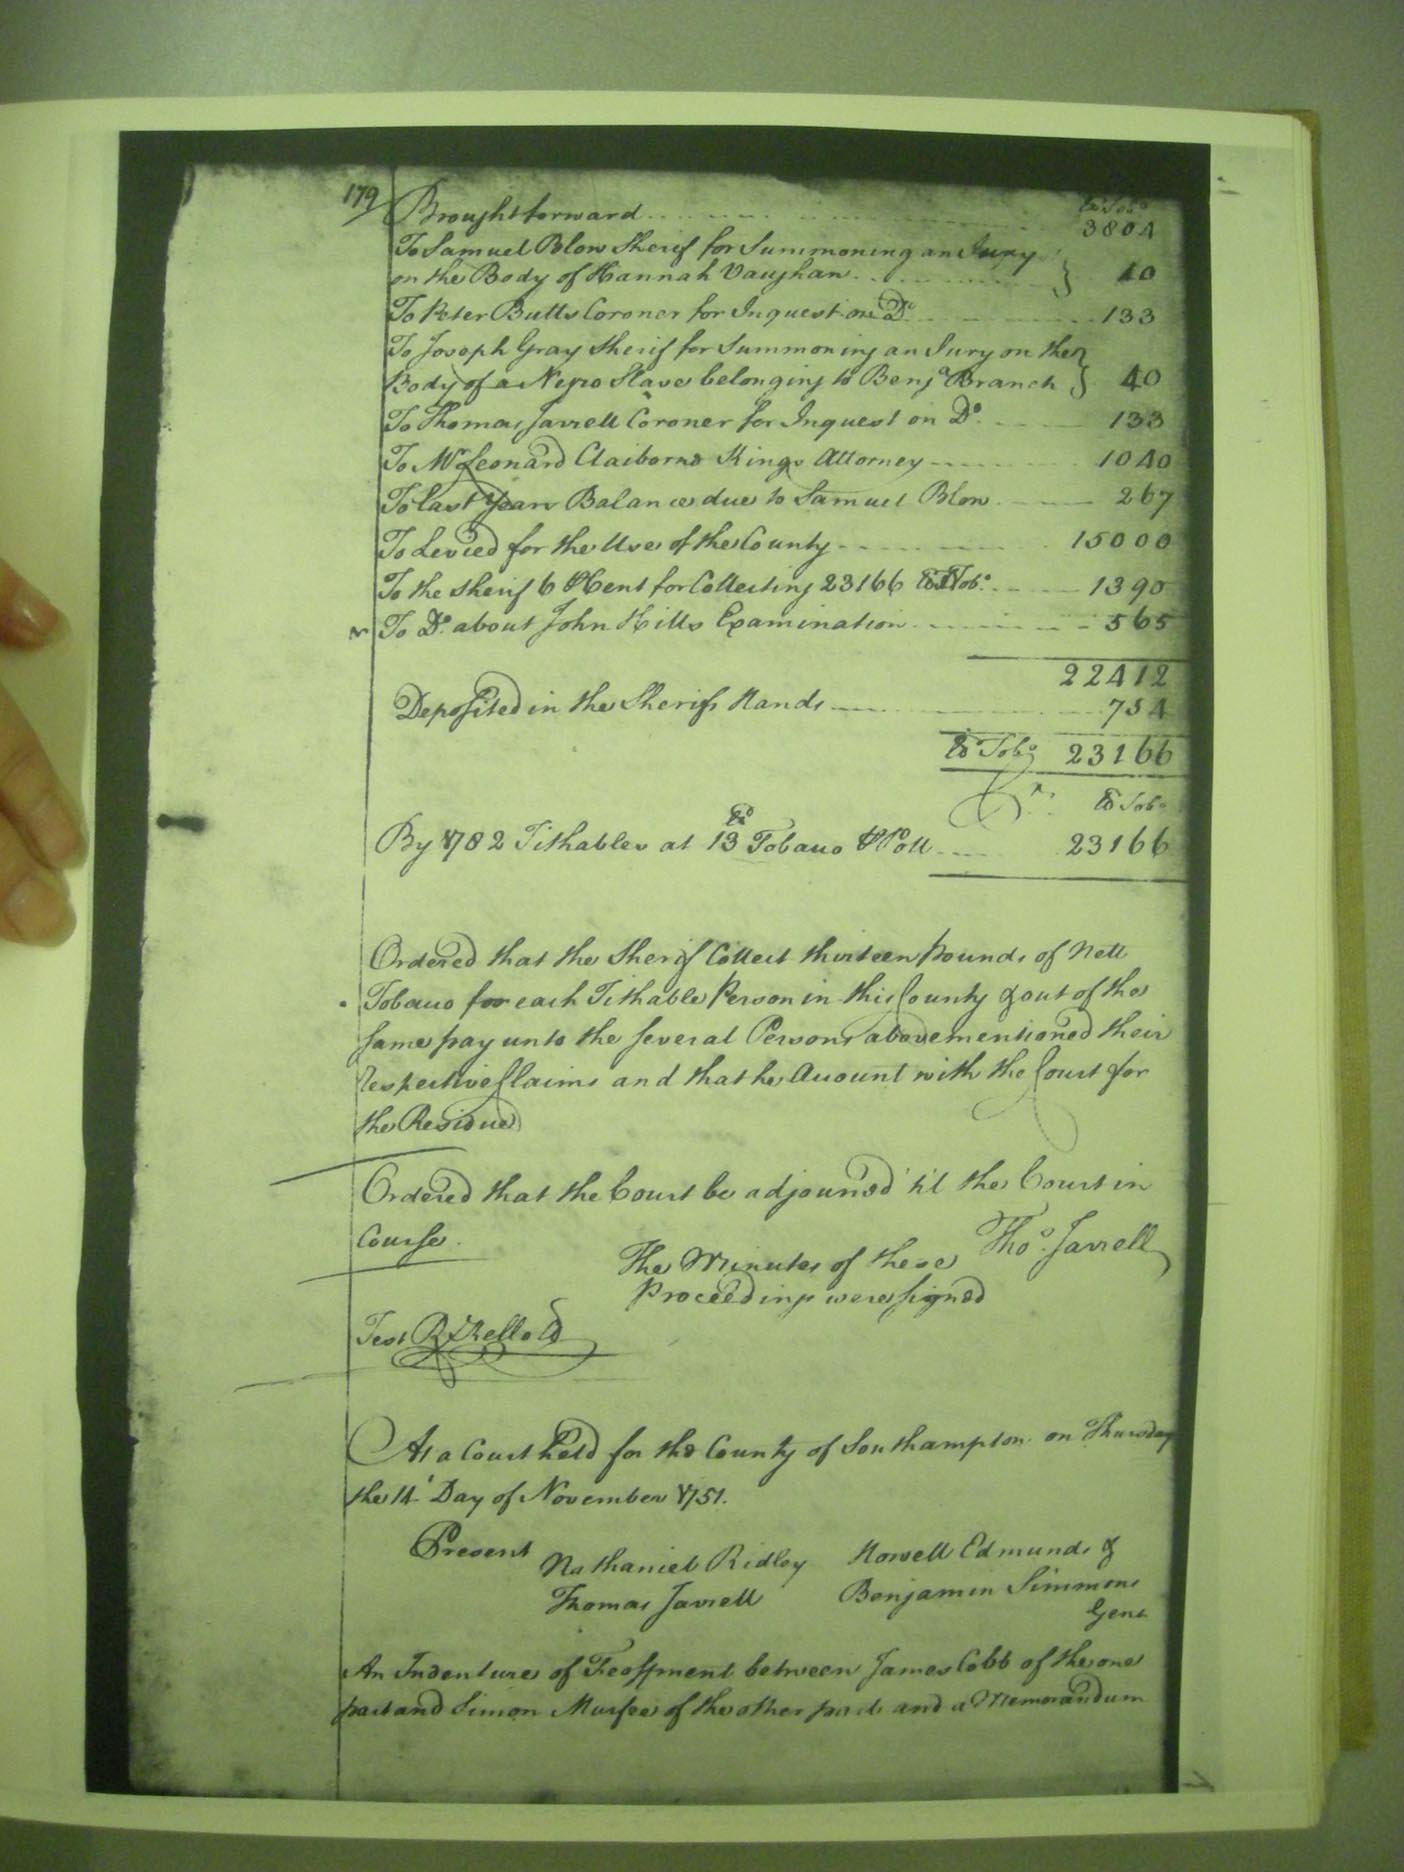 179 Brought forward
lb Tobo
3804
To Samuel Blow Sherif for Summoning an Jury
on the Body of Hannah Vaughan } 40
To Peter Butts Coroner for Inquest on Do 133
To Joseph Gray Sherif for Summoning an Jury on the
Body of a Negro Slave belonging to Benja Branch } 40
To Thomas Jarrell Coroner for Inquest on Do. 133
To Mr Leonard Claiborne Kings Attorney 1040
To last Years Balance due to Samuel Blow 267
To Levied for the Use of the County 15000
To the Sherif 6 ⅌ Cent for Collecting 23166 lb Tobo. 1390
To Do. about John Hills Examination 565
22412
Deposited in the Sherifs Hands 754
lb Tobo 23166
Cr. lb Tobo
By 1782 Tithables at 13 lb Tobacco ⅌ Poll 23166
Ordered that the Sherif Collect thirteen Pounds of Nett
Tobacco for each Tithable Person in this County & out of the
same pay unto the several Persons abovementioned their
respective Claims and that he Account with the Court for
the Residue
Ordered that the Court be adjourned 'til the Court in
Course.
The Minutes of these Tho. Jarrell
Proceedings were signed
Test R Kello
At a Court held for the County of Southampton on Thursday
the 14 Day of November 1751.
Present Nathaniel Ridley Howell Edmunds &
Thomas Jarrell Benjamin Simmons
Gent
An Indenture of Feoffment between James Cobb of the one
part and Simon Murfee of the other part and a Memorandum